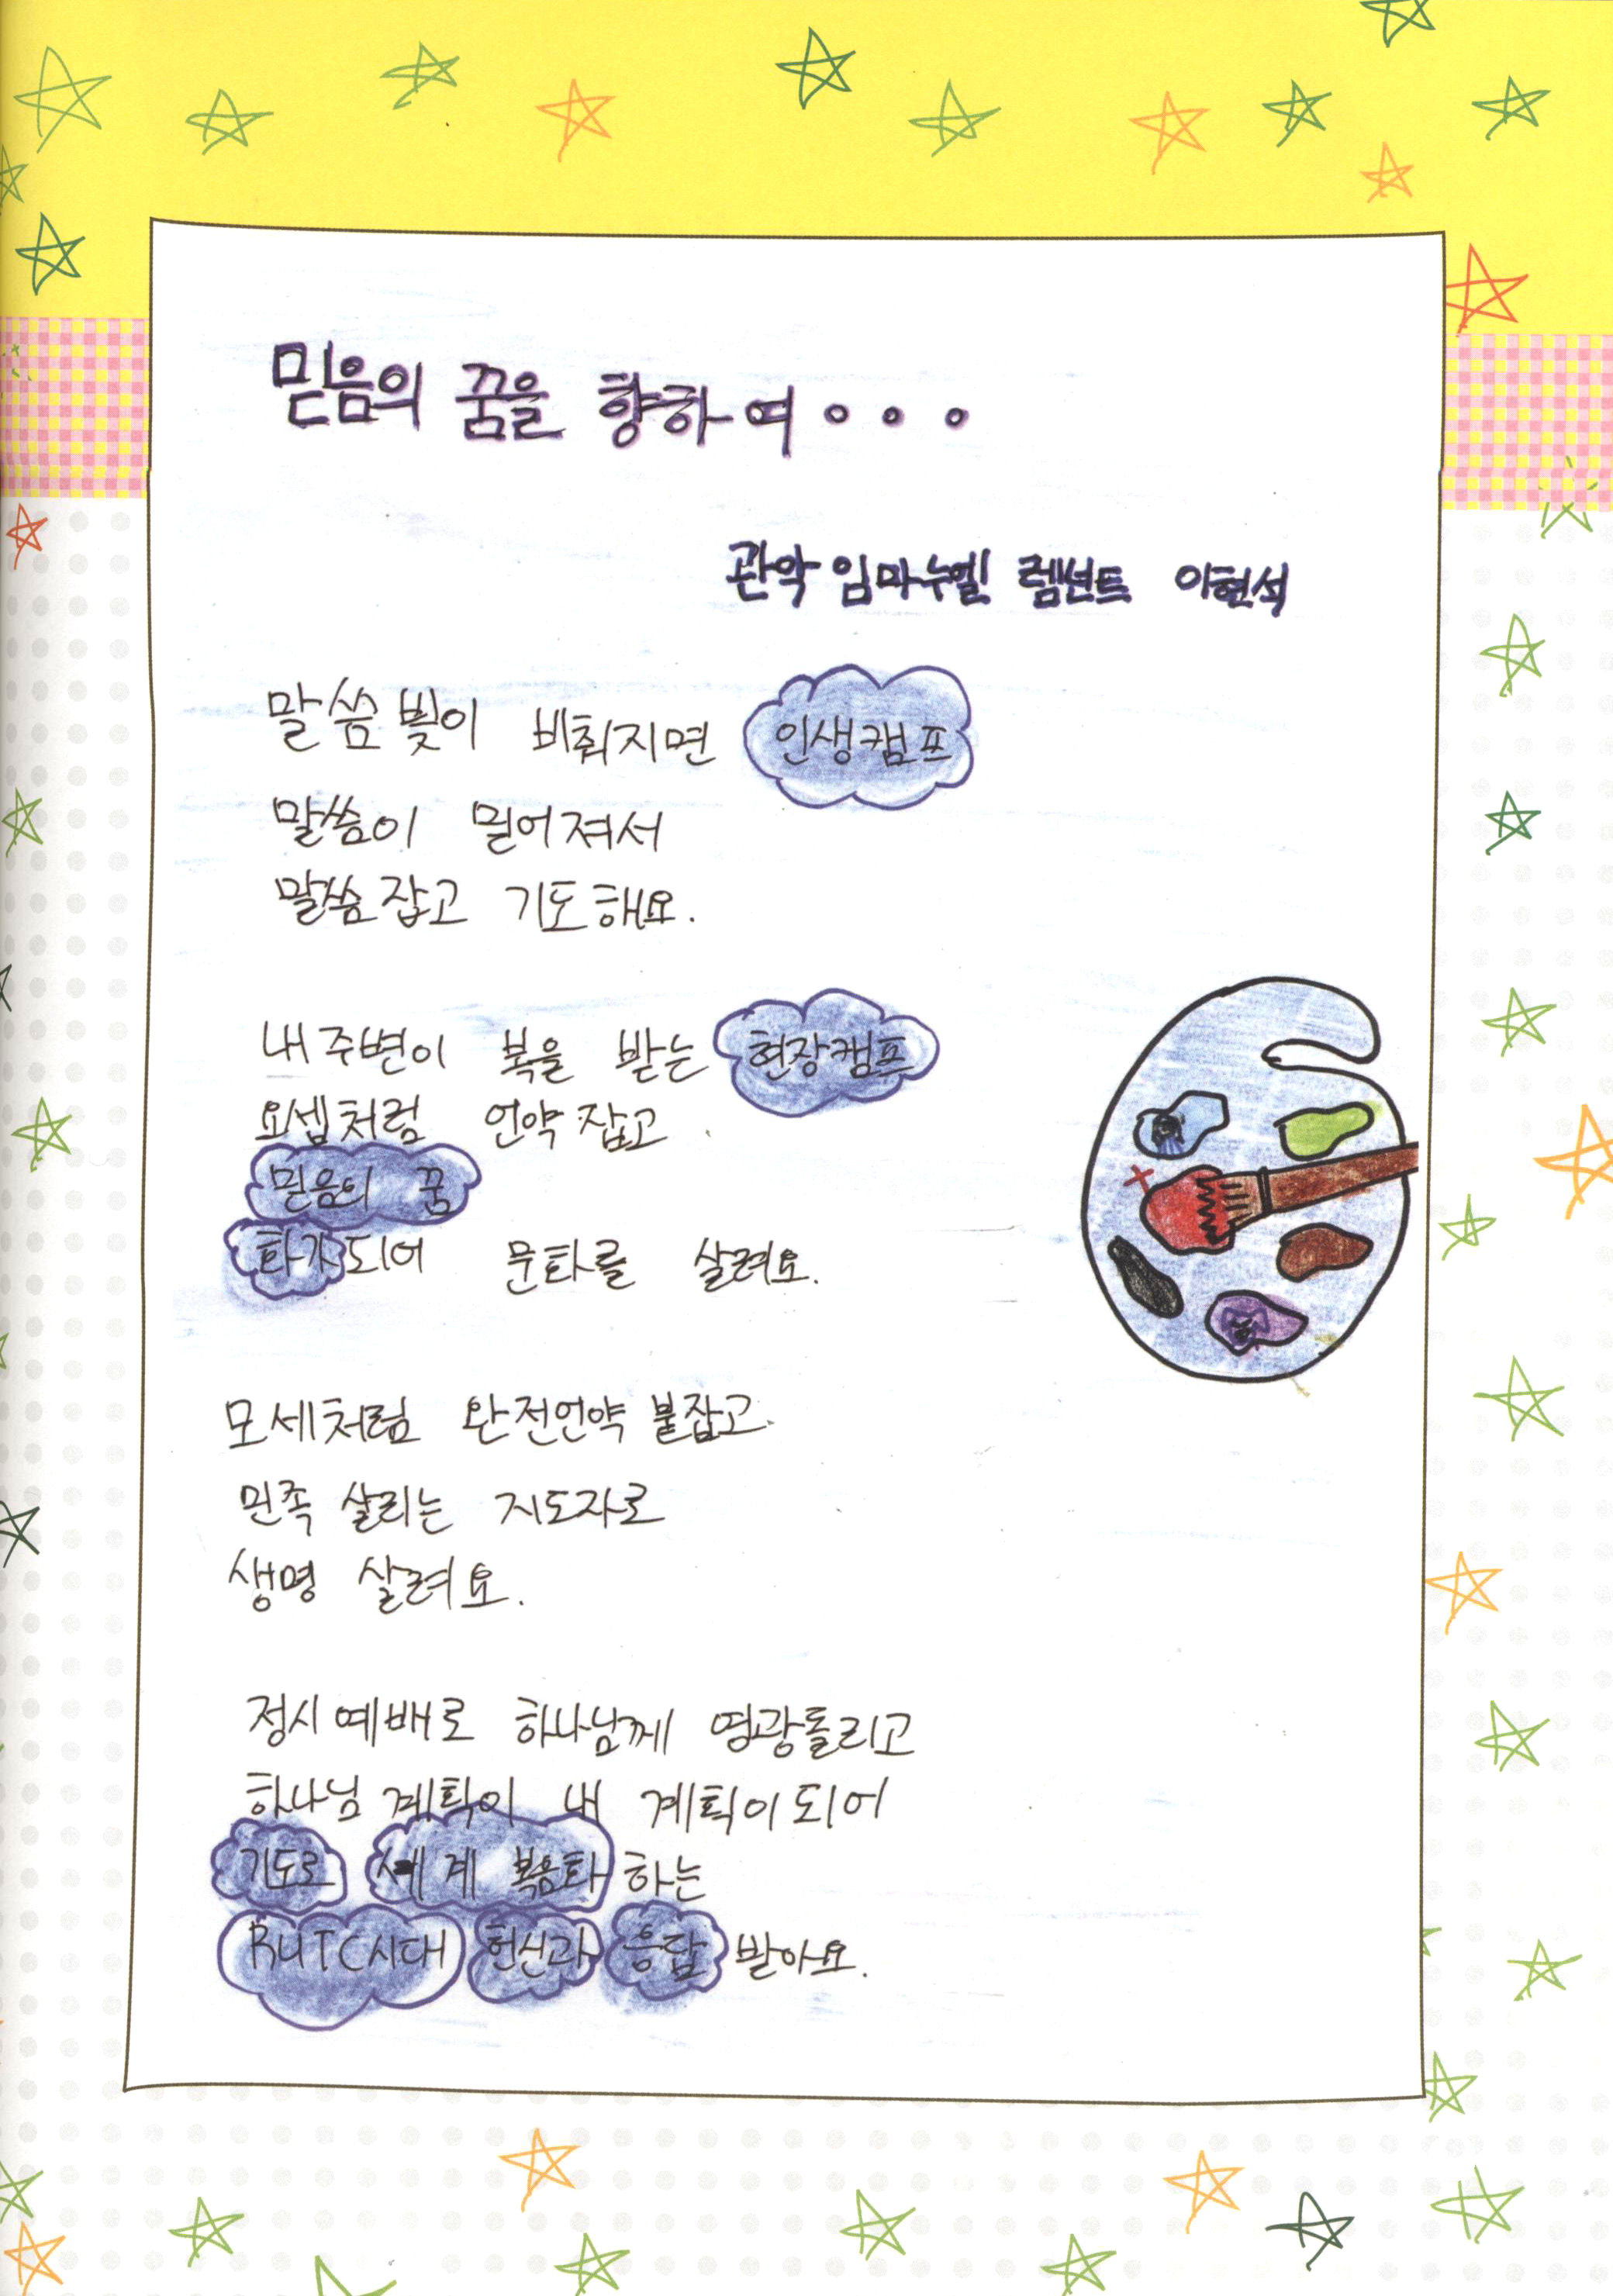 믿음의 꿈을 향하여...
관악 임마누엘 렘넌트 이현석
말씀 빛이 비춰지면 인생캠프
말씀이 믿어져서
말씀 잡고 기도해요.
내 주변이 복을 받는 현장캠프
요셉처럼 언약 잡고
믿음의 꿈
화가 되어 문화를 살려요.
모세처럼 완전언약 붙잡고
민족 살리는 지도자로
생명 살려요.
정시예배로 하나님께 영광돌리고
하나님 계획이 내 계획이 되어
기도로 세계 복음화 하는
RUTC시대 헌신과 응답 받아요.